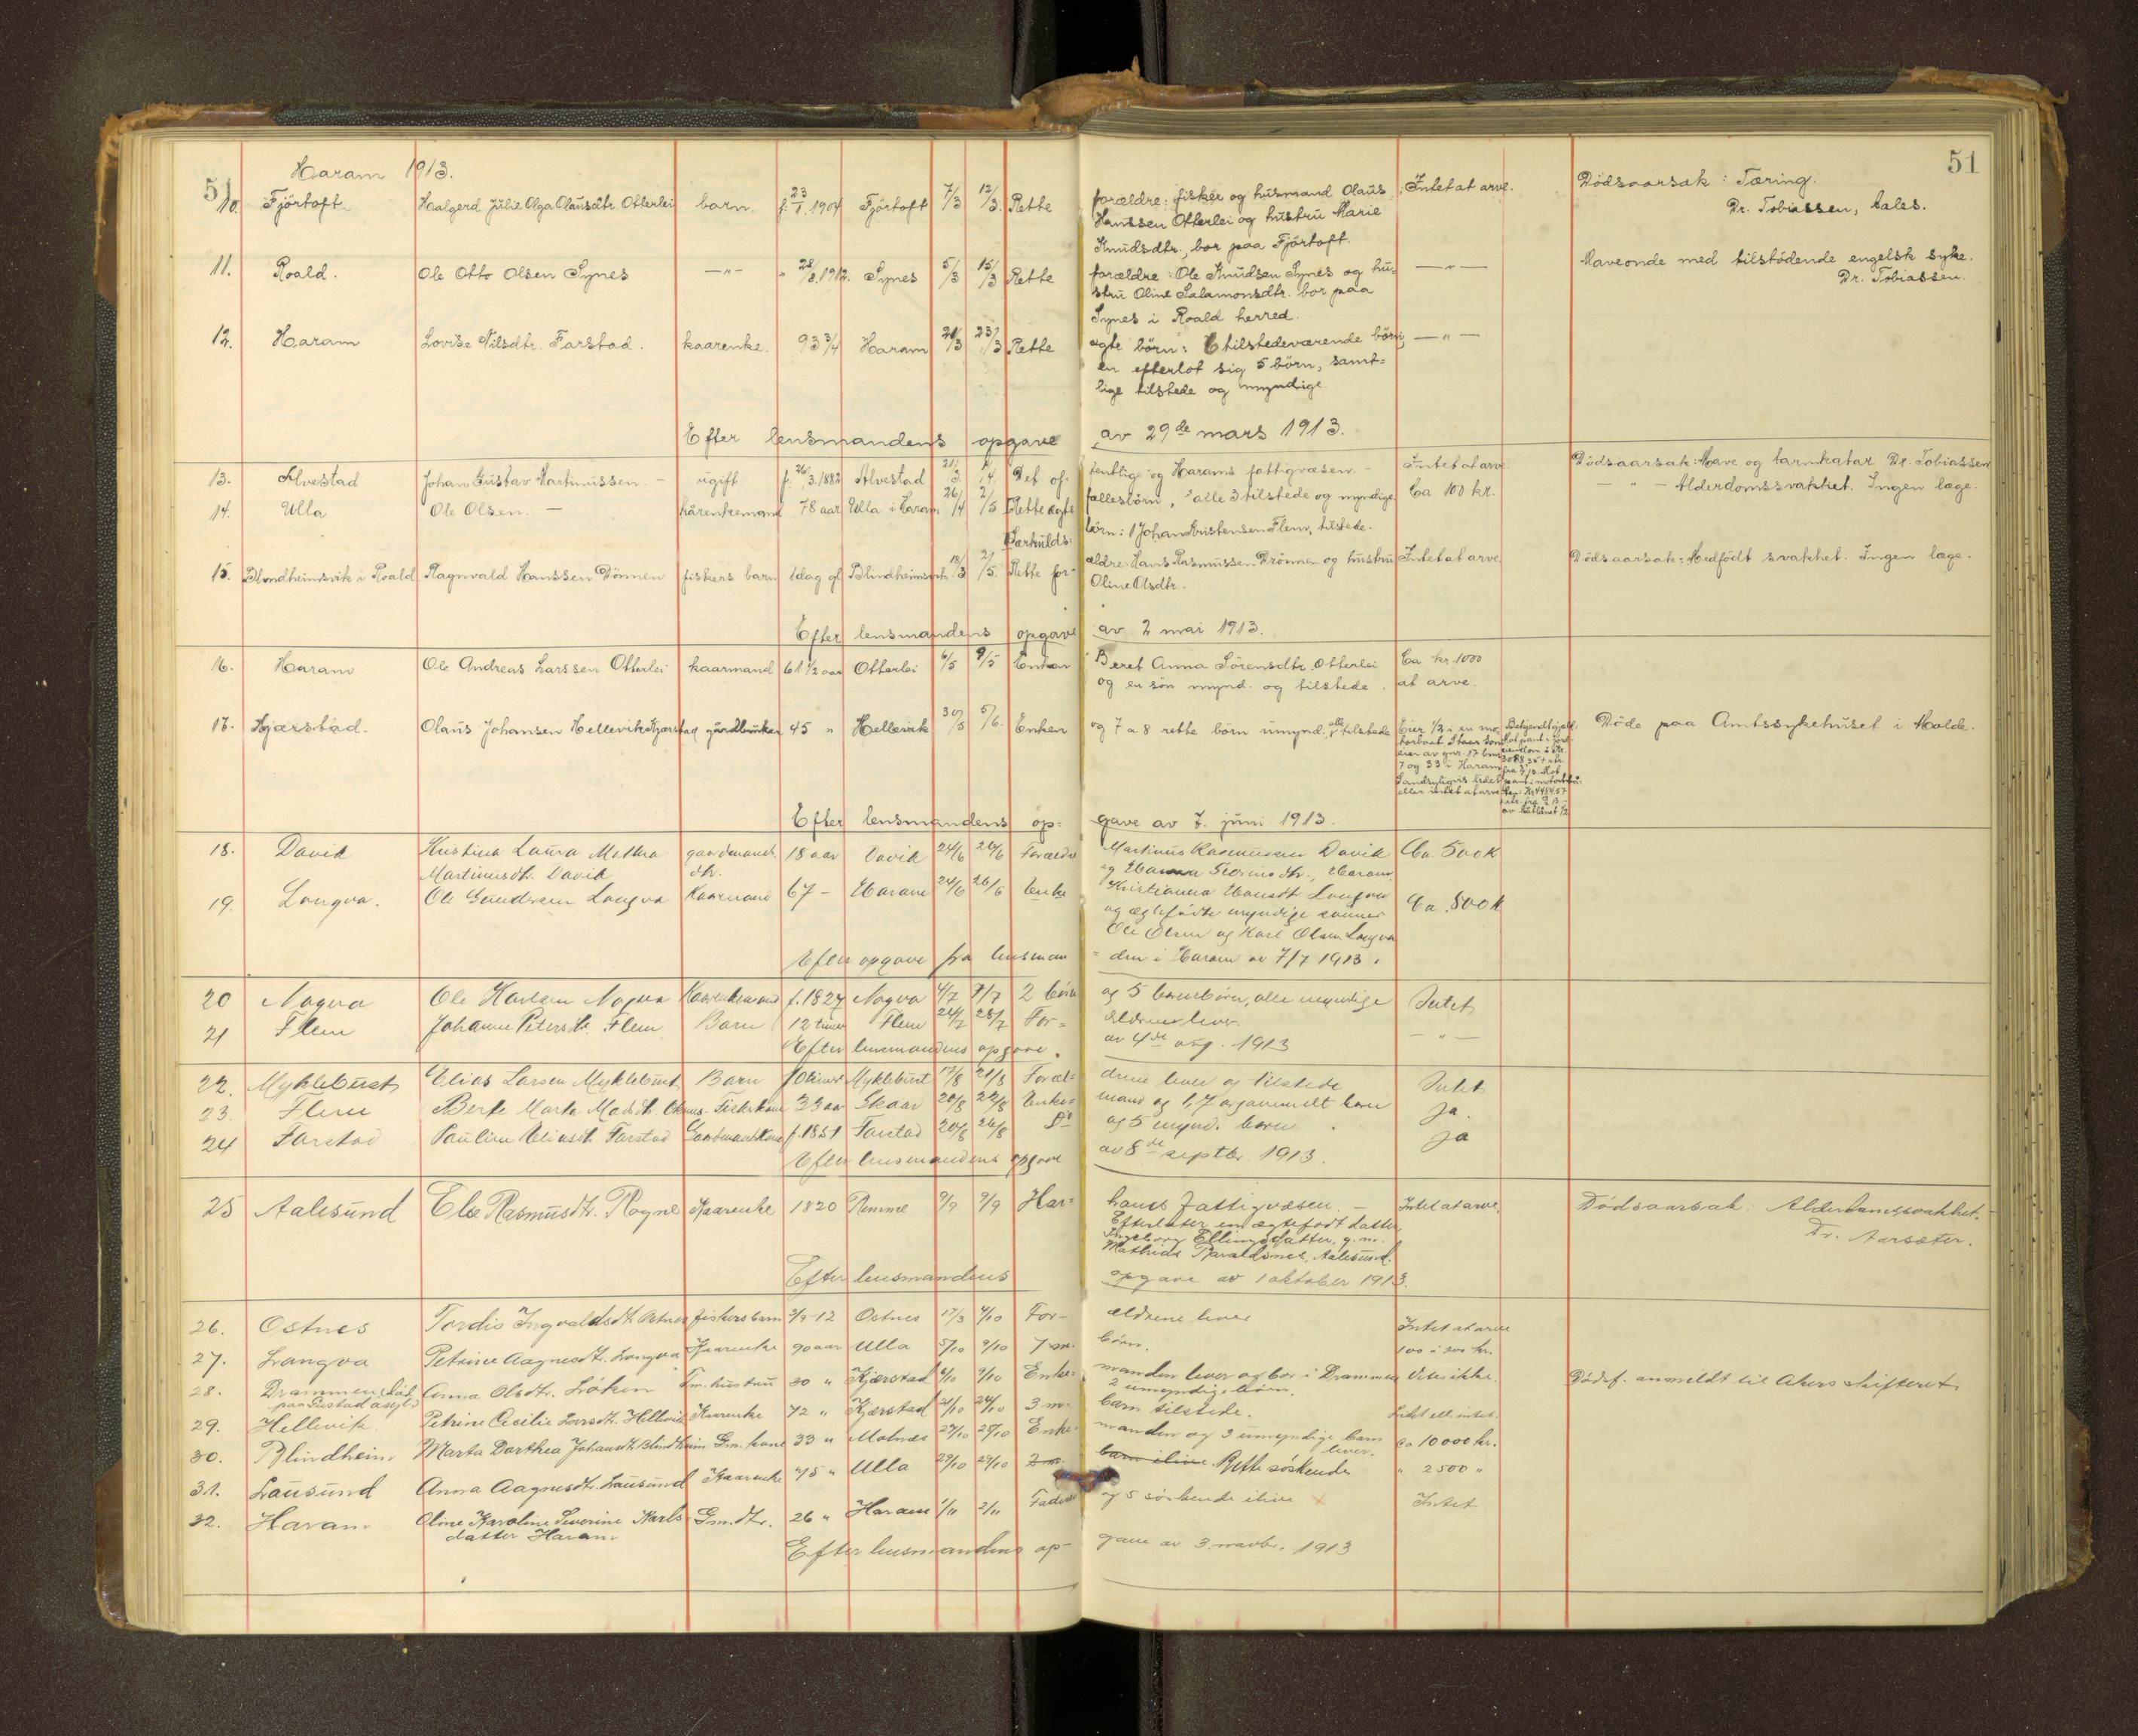 51 Haram 1913. 51
10. Fjörtoft. Halgerd Julie Olga Olausdtr. Otterlei barn. f. 23/1. 1904 Fjörtoft 7/3 12/3. Rette forældre: fisker og husmand Olaus Intet at arve. Dödsaarsak: Tæring.
Hanssen Otterlei og hustru Marie Dr. Tobiassen, Aales.
Knudsdtr., bor paa Fjörtoft.
11. Roald. Ole Otto Olsen Synes —"— " 28/8. 1912. Synes 5/3 15/3 Rette forældre: Ole Knudsen Synes og hu= —"— Maveonde med tilstödende engelsk syke.
stru Oline Salamonsdtr. bor paa Dr. Tobiassen.
Synes i Roald herred.
12. Haram Lovise Nilsdtr. Farstad. kaarenke. 93 3/4 Haram 21/3 23/3 Rette ægte börn: 6 tilstedeværende börn, —"—
en efterlot sig 5 börn, samt=
lige tilstede og myndige.
Efter lensmandens opgave av 29de mars 1913.
13. Alvestad Johan Gustav Martinussen. — ugift f. 26/3. 1882 Alvestad 21/3 1/4. Det of= fentlige og Harams fattigvæsen. — Intet at arve. Dödsaarsak: Mave og tarmkatar. Dr. Tobiassen
14. Ulla Ole Olsen. — kårenkemand 78 aar Ulla i Haram 26/4 2/5 Rette ægte fællesbörn, alle 3 tilstede og myndige Ca 100 kr. — " — Alderdomssvakhet. Ingen læge.
Særkulds= börn: 1 Johan Kristensen Flem, tilstede.
15. Blindheimsvik i Roald Ragnvald Hanssen Dönnen fiskers barn 1 dag gl. Blindheimsvik 18/3 2/5. Rette for= ældre: Hans Rasmussen Drönnen og hustru Intet at arve. Dödsaarsak: Medfödt svakhet. Ingen læge.
Oline Olsdtr.
Efter lensmandens opgave av 2 mai 1913.
16. Haram Ole Andreas Larssen Otterlei kaarmand 61 1/2 aar Otterlei 6/5 9/5 Enken Beret Anna Sörensdtr. Otterlei Ca kr 1000
og en sön mynd. og tilstede. at arve.
17. Kjærstad. Olaus Johansen Hellevik Kjærstad gårdbruker 45 " Hellevik 30/5 5/6. Enken og 7 a 8 rette börn umynd., alle tilstede Eier 1/3 i en mo= Döde paa Amtssykehuset i Molde.
7 og 33 i Haram
Sandsynligvis lidet
eller intet at arve
Efter lensmandens op= gave av 7. juni 1913.
18. Davik Kristina Laura Mathea gaardmands 18 aar Davik 24/6 26/6 Forældre Martinus Rasmussen Davik Ca. 500 K
Martinusdtr. Davik dtr. og Hanna dtr., Haram.
19. Longva. Ole Gundersen Longva Kaarmand 67 — Haram 24/6 26/6 Enke Kristianna Hansdt Longva Ca. 800 K
og ægtefödte myndige sönner
Ole Olsen og Karl Olsen Longva
Efter opgave fra lensman= den i Haram av 7/7 1913.
20 Nogva Ole Karlsen Nogva Kaarenkemand f. 1827 Nogva 4/7 9/7 2 börn og 5 barnebörn, alle myndige Intet
21 Flem Johanne Petersdtr. Flem Barn 12 timer Flem 24/7 28/7 For= ældrene lever. —"—
Efter lensmandens opgave. av 4de aug. 1913
22. Myklebust Elias Larsen Myklebust Barn timer Myklebust 17/8 21/8 Foræl= drene lever og tilstede Intet
23. Flem Berte Marta Madsdt. Fiskerkone 33 aar Skaar 20/8 22/8 Enke= mand og 1, 7 aar gammelt barn Ja.
24 Farstad Pauline Eliasdt. Farstad Gaardmandskone f. 1851 Farstad 20/8 26/8 Do og 5 mynd. börn. Ja
Efter lensmandens opgave av 8de septbr. 1913.
25 Aalesund Else Rasmusdtr. Rogne Kaarenke 1820 Remme 9/9 Har= hams Fattigvæsen. — Intet at arve. Dödsaarsak: Alderdomssvakhet.
Efterlater en ægtefödt datter Dr. Aarsæter.
Ingeborg Ellingsdatter, g. m.
Mathias Tharaldsnes, Aalesund.
Efter lensmandens opgave av 1 oktober 1913.
26. Ostnes Tordis Ingvaldsdt. Ostnes fiskers barn 3/9-12 Ostnes 17/3 4/10 For- ældrene lever Intet at arve
27. Longva Petrine Aagesdt. Longva Kaarenke 90 aar Ulla 5/10 9/10 7 m. börn. 100 à 200 kr.
28. Drammen, död Anna Olsdtr. Löken Fm. hustru 30 " Kjærstad 6/10 9/10 Enke= manden lever og bor i Drammen Vites ikke. Dödsf. anmeldt til Akers skifteret
paa asyl 2 umyndige börn.
29. Hellevik Petrine Cecilie Larsdt. Hellevik Kaarenke 72 " Kjærstad 21/10 24/10 3 m. barn tilstede. Litet ell. intet.
30. Blindheim Marta Dorthea Johansdt. Blindheim Gm. kone 33 " Molnes 27/10 28/10 Enke= manden og 3 umyndige barn ca 10000 kr.
lever.
31. Lausund Anna Aagesdtr. Lausund Kaarenke 75 " Ulla 29/10 29/10 2 m. barn ilive. Rette söskende " 2500 "
32. Haram Oline Karoline Severine Karls= Gm. dtr. 26 " Haram 1/11 2/11 Fader og 5 söskende ilive x Intet
datter Haram
Efter lensmandens op- gave av 3. novbr. 1913